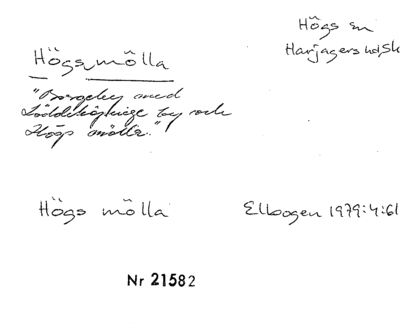 Högs mölla
Högs sn
Harjagers hd, Sk
"Borgeby med
Löddeköpinge by och
Högs mölla."
Högs mölla
Elbogen 1979:4:61
Nr 21582